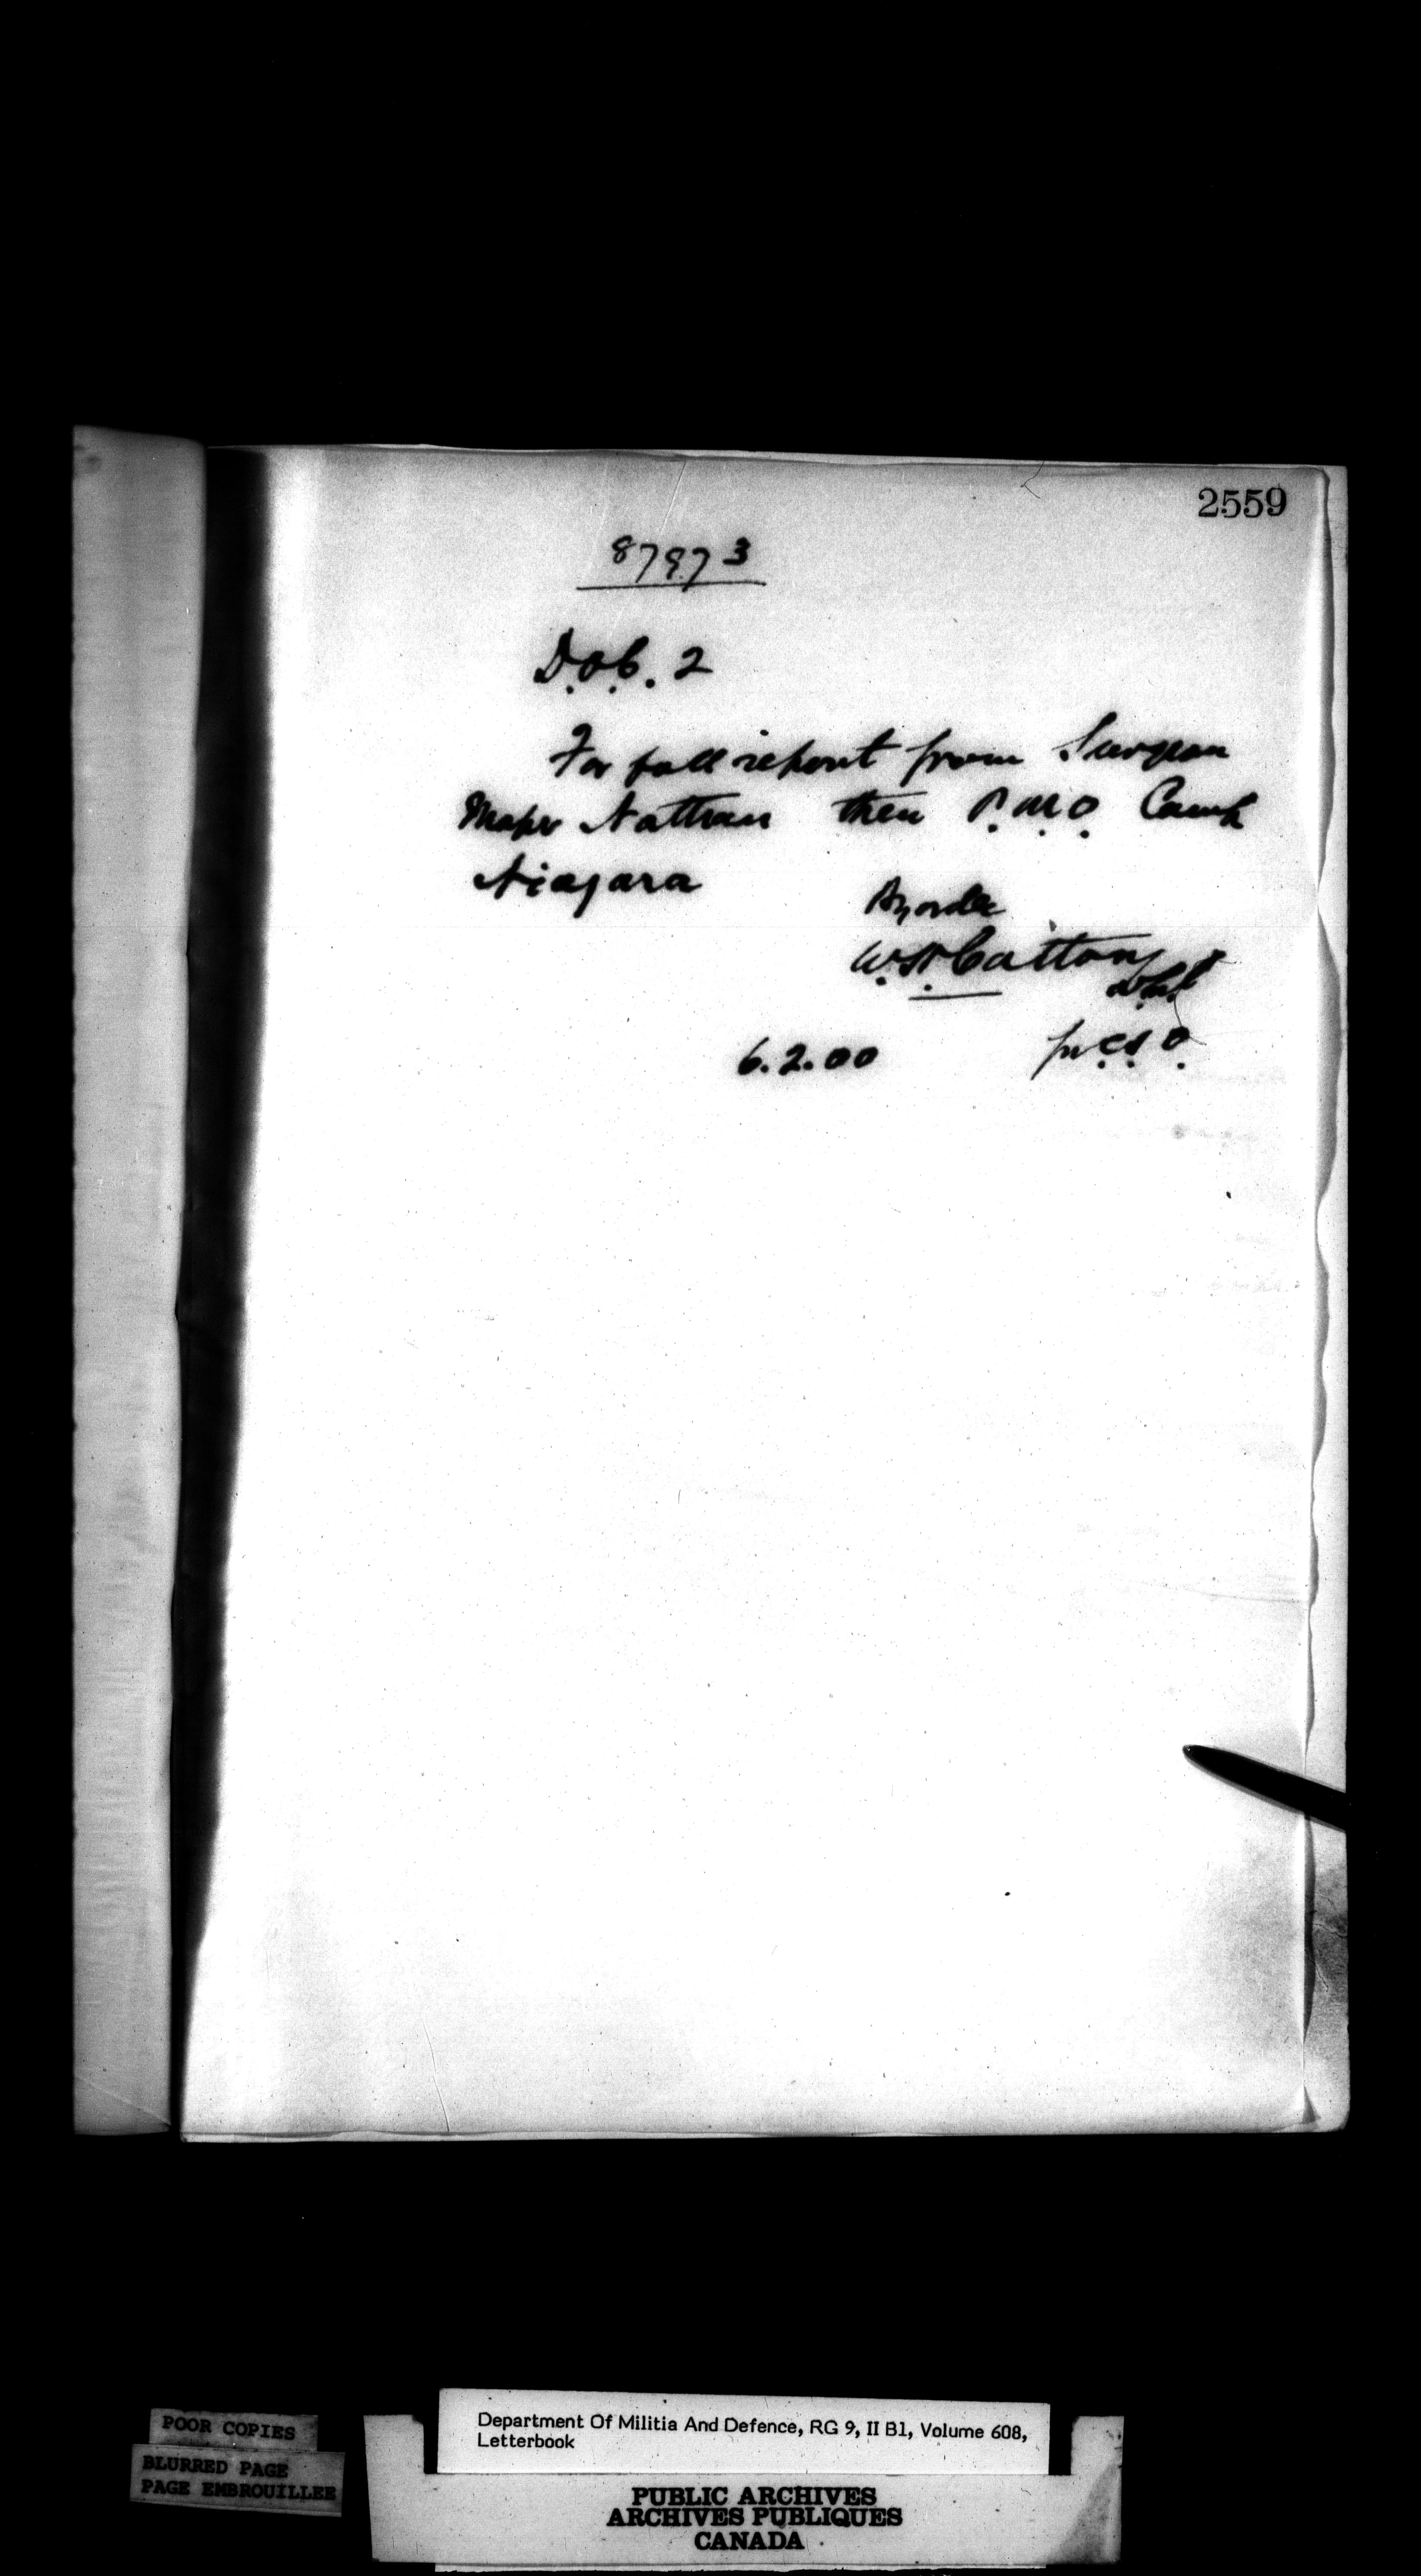 2559
87973
D.O.C. 2
For full report from Surgeon
Major Nattrass then P.M.O. Camp
Niagara
By order
W. H. Cotton
for C.S.O.
6.2.00
POOR COPIES
BLURRED PAGE
PAGE EMBROUILLEE
Department Of Militia And Defence, RG 9, II B1, Volume 608,
Letterbook
PUBLIC ARCHIVES
ARCHIVES PUBLIQUES
CANADA